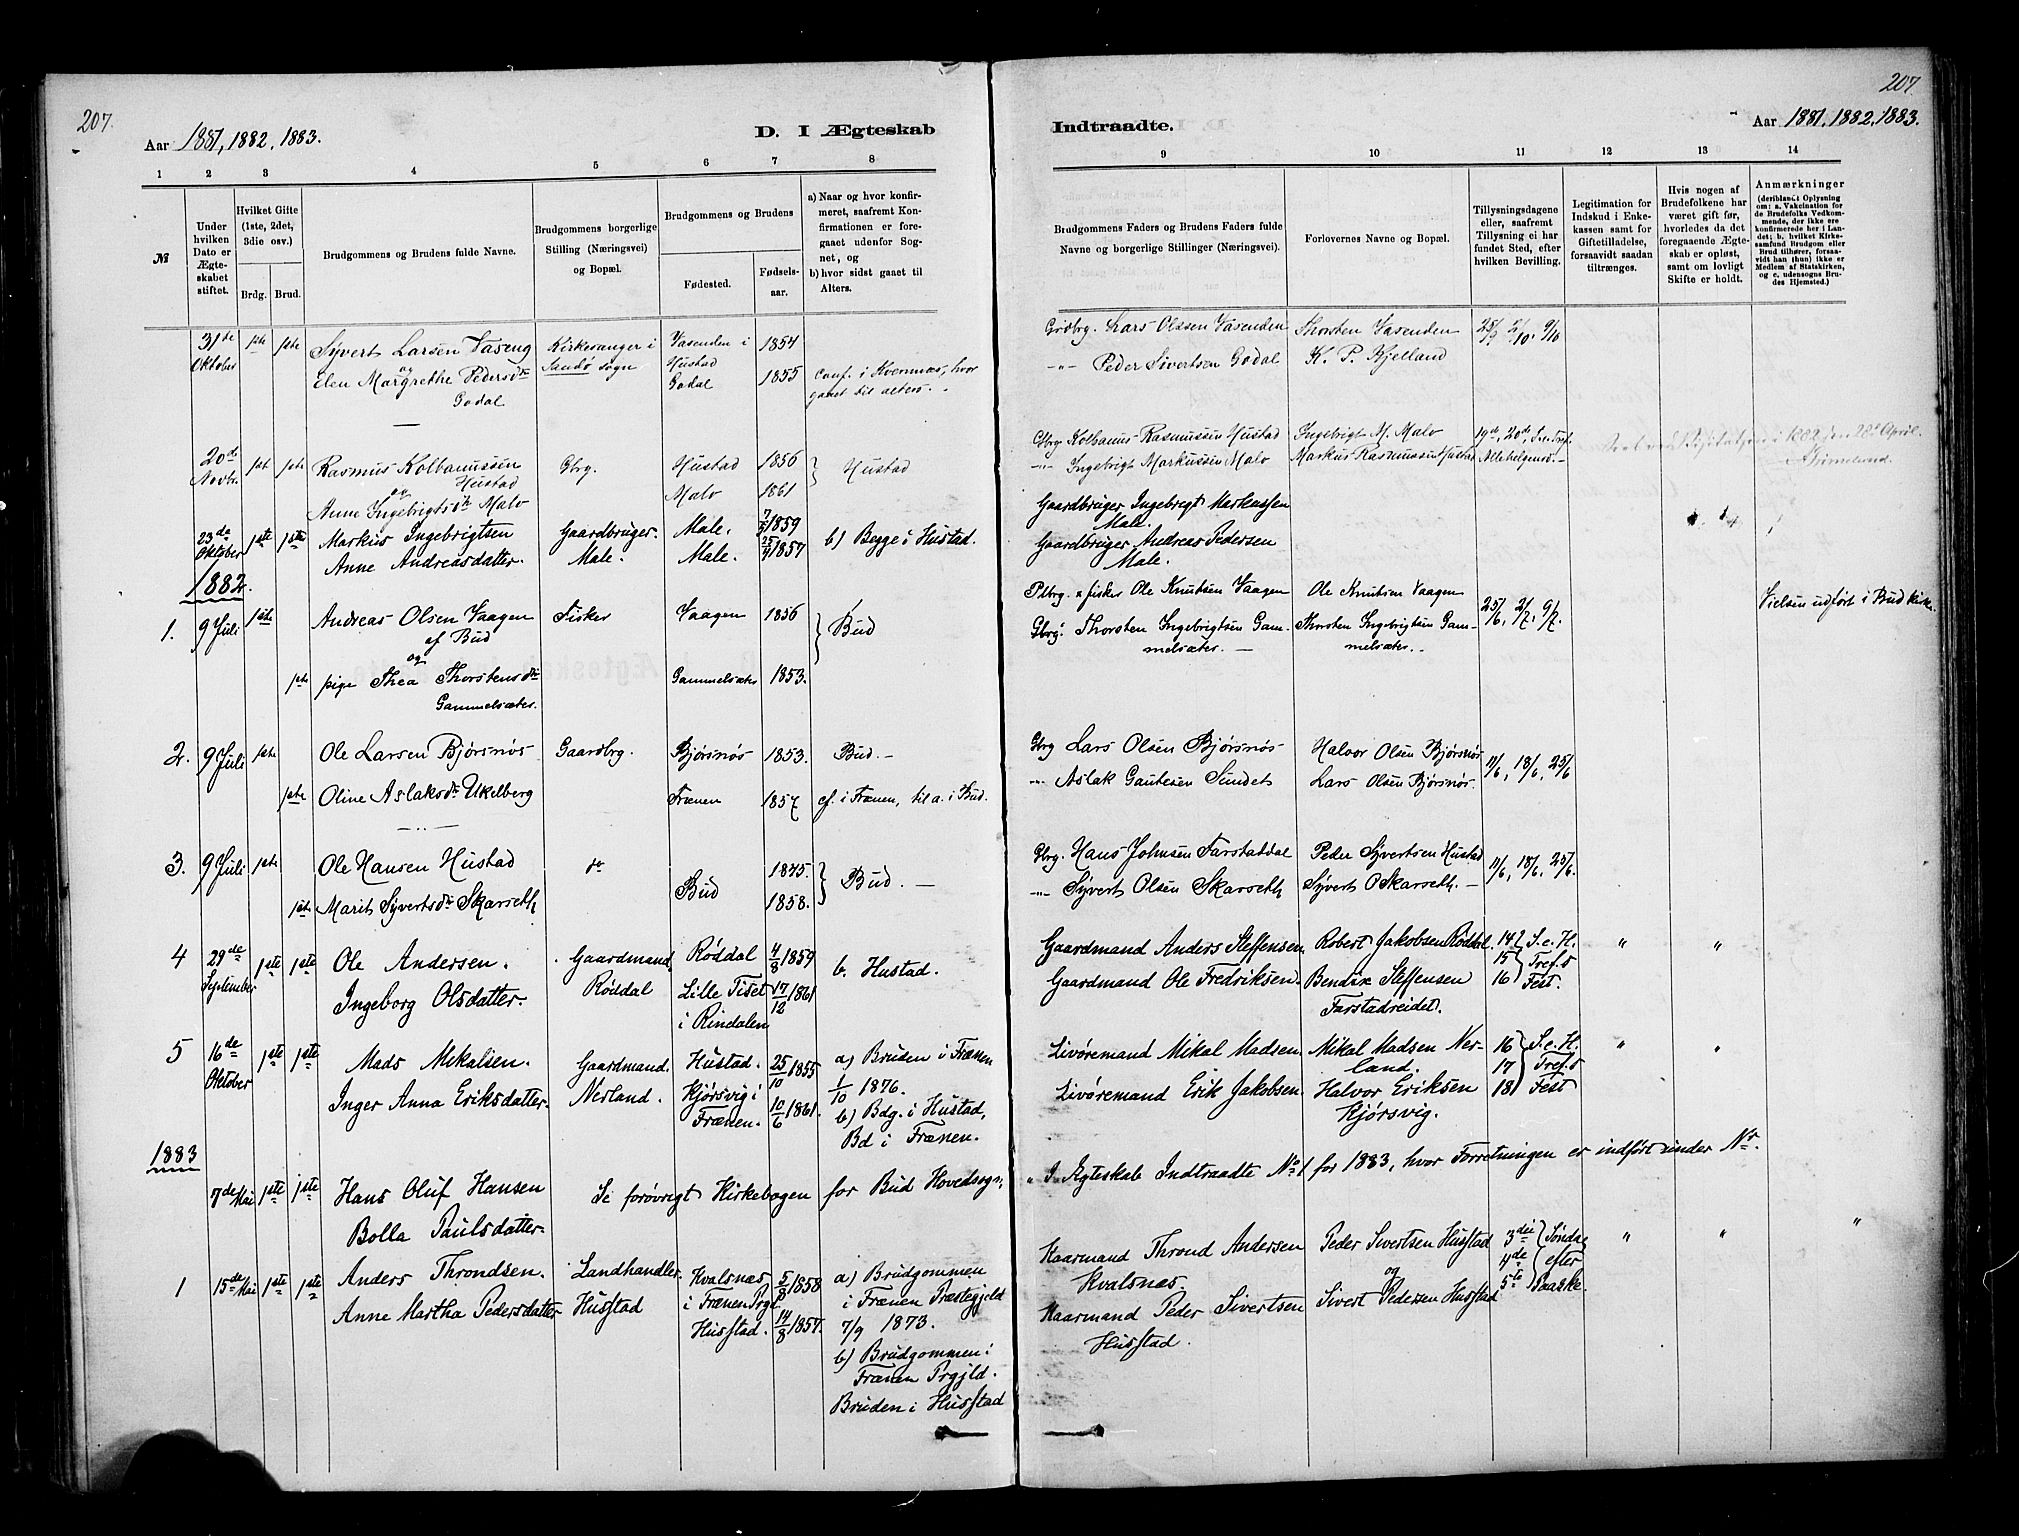 207.
Aar 1881, 1882, 1883.
D. I Ægteskab
1 2 3 4 5 6 7 8
№
Under hvilken Dato er Ægteskabet stiftet.
Hvilket Gifte (1ste, 2det, 3die osv.)
Brdg. Brud.
Brudgommens og Brudens fulde Navne.
Brudgommens borgerlige Stilling (Næringsvei) og Bopæl.
Brudgommens og Brudens
Fødested.
Fødselsaar.
a) Naar og hvor konfirmeret, saafremt Konfirmationen er foregaaet udenfor Sognet, og
b) hvor sidst gaaet til Alters.
31de Oktober 1ste 1ste Syvert Larsen Vaseng Kirkesanger i Vasenden i 1854
og Sandø sogn Hustad
Elen Margrethe Pedersdr Godal 1855 conf. i Kvernnæs, hvor
Godal gaaet til alters. -
20de Novbr. 1st 1ste Rasmus Kolbanussen Gbrg. Hustad 1856 Hustad
Hustad
og
Anne Ingebrigtsdr Malo Malo 1861
23de Oktober 1ste 1ste Markus Ingebrigtsen Gaardbruger. Male. 1859 b) Begge i Hustad.
Anne Andreasdatter. Male. Male. 1857
1882.
1. 9 Juli 1ste Andreas Olsen Vaagen Fisker Vaagen 1856 Bud
af Bud
og
1ste pige Thea Thorstensdr Gammelsæter 1853.
Gammelsæter.
2. 9 Juli 1ste Ole Larsen Bjørsnøs Gaardbrg. Bjørsnøs 1853. Bud. -
1ste Oline Aslaksdr Ukelberg Frænen 1857 cf. i Frænen, til a. i Bud.
3. 9 Juli 1ste Ole Hansen Hustad do Bud 1845. Bud. -
1ste Marit Syvertsdr Skarseth 1858.
4 29de September 1ste 1ste Ole Andersen. Gaardmand Røddal 4/8 1859 b. Hustad.
Ingeborg Olsdatter. Røddal Lille Tiset 17/12 1861
i Rindalen
5 16de Oktober 1ste 1ste Mads Mekalsen. Gaardmand. Hustad. 25/10 1855 a) Bruden i Frænen
Inger Anna Eriksdatter. Nerland. Kjørsvig i 10/6 1861. 1/10 1876.
Frænen. b) Bdg. i Hustad,
Bd i Frænen.
1883
7de Mai 1ste 1ste Hans Oluf Hansen Se forøvrigt Kirkebogen for Bud Hovedsogn,
Bolla Paulsdatter.
1 15de Mai 1ste 1ste Anders Throndsen. Landhandler. Kvalsnæs 5/8 1858 a) Brudgommen
i Frænen Prgj. i Frænen Præstegjeld
Anne Martha Pedersdatter Husstad Husstad. 14/8 1857. 7/9 1873.
b) Brudgommen i
Frænen Prgjld.
Bruden i Husstad
207.
Indtraadte.
Aar 1881. 1882. 1883.
9 10 11 12 13 14
Brudgommens Faders og Brudens Faders fulde Navne og borgerlige Stillinger (Næringsvei).
Forlovernes Navne og Bopæl.
Tillysningsdagene eller, saafremt Tillysning ei har fundet Sted, efter hvilken Bevilling.
Legitimation for Indskud i Enkekassen samt for Giftetilladelse, forsaavidt saadan tiltrænges.
Hvis nogen af Brudefolkene har været gift før, hvorledes da det foregaaende Ægteskab er opløst, samt om lovligt Skifte er holdt.
Anmærkninger
(deriblandt Oplysning om: a. Vakcination for de Brudefolks Vedkommende, der ikke ere konfirmerede her i Landet; b. hvilket Kirkesamfund Brudgom eller Brud tilhører, forsaavidt han (hun) ikke er Medlem af Statskirken, og c. udensogns Brudes Hjemsted.)
Grdbrg. Lars Olssen Vasenden Thorsten Vasenden 25/9 2/10. 9/10
-"- Peder Sivertsen Godal K. P. Kjelland
Gbrg Kolbanus Rasmussen Hustad Ingebrigt M. Malo 19de, 20de, S. e. Tref.
-"- Ingebrigt Markussen Malo Markus Rasmussen Hustad Allehelgensd. -
Gaardbruger Ingebregt Markussen
Male.
Gaardbruger Andreas Pedersen
Male.
Plbrg. & fisker Ole Knutsen Vaagen Ole Knutsen Vaagen 25/6, 2/7. 9/7. Vielsen udført i Bud kirke.
Gbrg. Thorsten Ingebrigtsen Gammelsæter. - Thorsten Ingebrigtsen Gammelsæter. -
Gbrg Lars Olsen Bjørsnøs Halvor Olsen Bjørsnøs 11/6, 18/6, 25/6
-"- Aslak Gautesen Sundet Lars Olsen Bjørsnøs.
Gbrg. Hans Johnsen Farstaddal Peder Syvertsen Hustad 11/6, 18/6. 25/6.
-"- Syvert Olsen Skarseth Syvert O Skarseth. -
Gaardmand Anders Steffensen. Robert Jakobsen Røddal. 14 S. e. H. " "
15 Tref.
Gaardmand Ole Fredriksen. Bendik Steffensen 16 Fest.
Farstadreidet.
Livøremand Mikal Madsen. Mikal Madsen Nerland. 16 S. e. H. " "
17 Tref.
Livøremand Erik Jakobsen. Halvor Eriksen 18 Fest
Kjørsvig.
" I Ægteskab Indtraadte No 1 for 1883, hvor Forretningen er indført under Nr.
Kaarmand Thrond Andersen Peder Sivertsen Husstad 3die Søndag " " "
Kvalsnæs. og 4de efter
Kaarmand Peder Sivertsen Sivert Pedersen Husstad 5te Paaske.
Husstad.